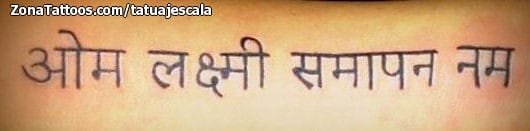 ZonaTattoos.com/tatuajescala
ओम लक्ष्मी समापन नम